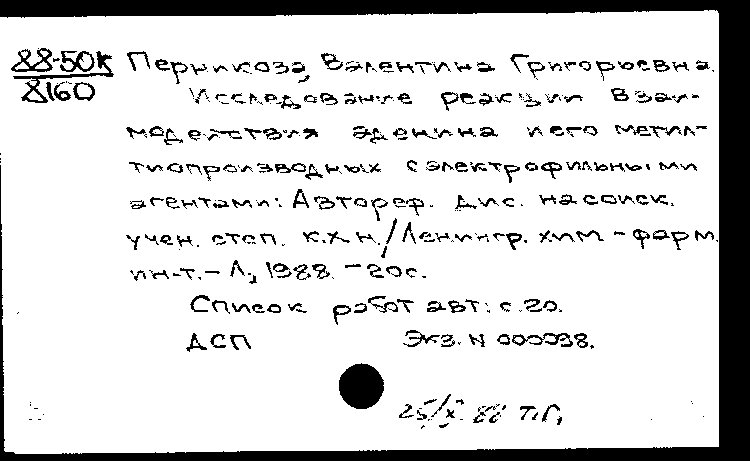 88-50к
8160
Перникоза, Валентина Григорьевна.
Исследование реакции взаи-
модействия аденина и его метил-
тиопроизводных с электрофильными
агентами: Автореф. дис. на соиск.
учен. степ. к.х.н./Ленингр. хим-фарм.
ин-т.-Л., 1988. -20с.
Список работ авт: с.20.
ДСП Экз. N 000038.
25/X 88 Т.Г.